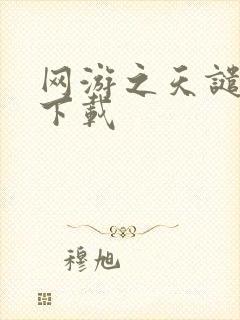 网游之天谴
下载
穆旭